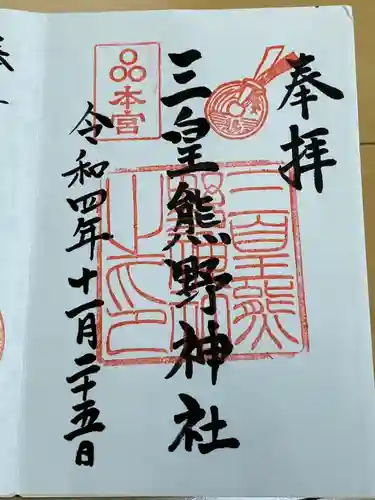 奉拝
三皇熊野神社
本宮
令和四年十一月二十五日
三皇熊
野神社
之印